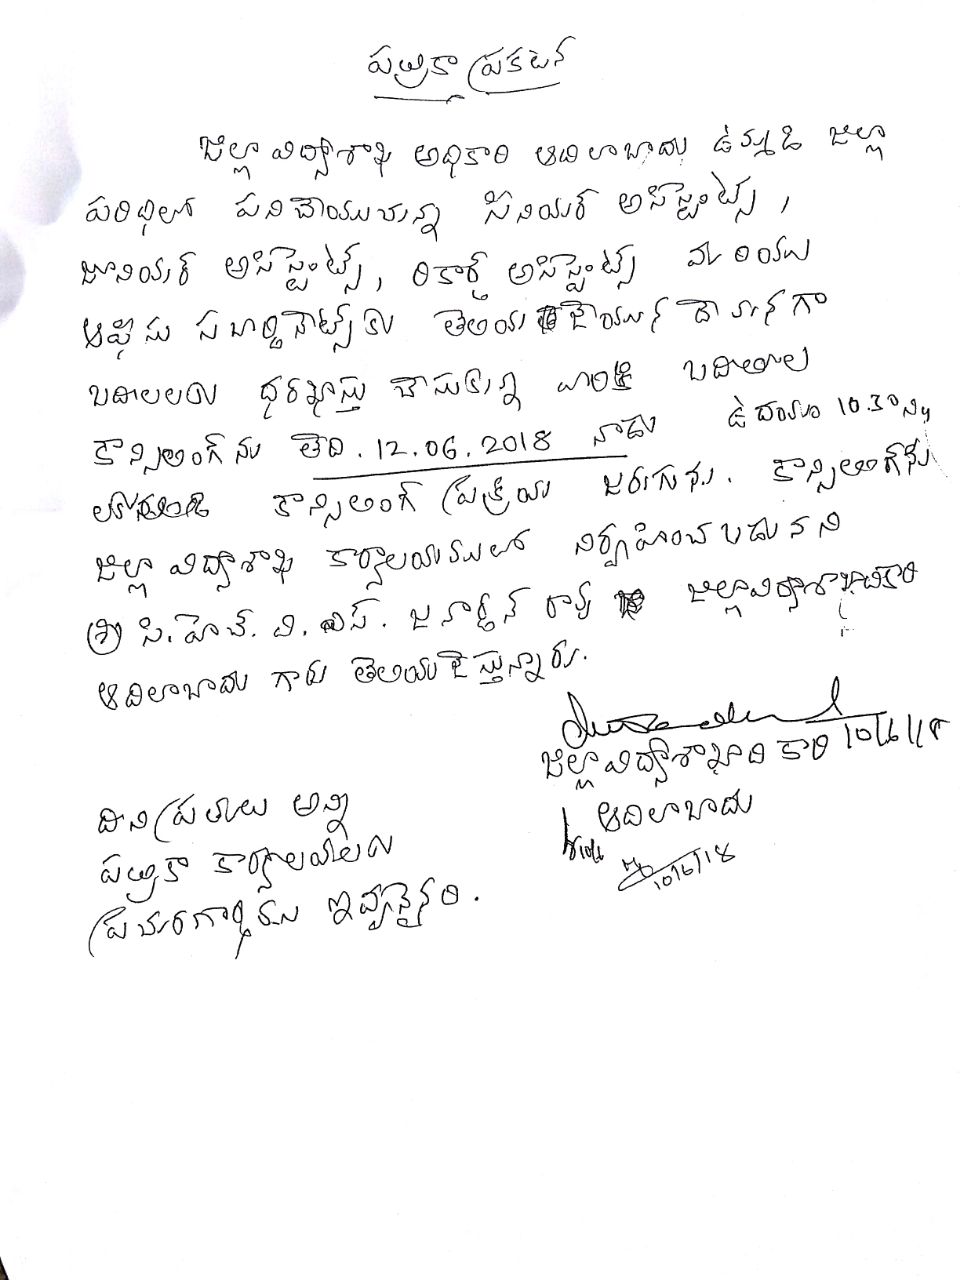 పత్రికా ప్రకటన
జిల్లా విద్యాశాఖ అధికారి ఆదిలాబాదు ఉమ్మడి జిల్లా
పరిధిలో పనిచేయుచున్న సీనియర్ అసిస్టెంట్స్,
జూనియర్ అసిస్టెంట్స్, రికార్డ్ అసిస్టెంట్స్ మరియు
ఆఫీసు సబార్డినేట్స్‌కు తెలియజేయునది ఏమనగా
బదిలీలకు ధరఖాస్తు చేసుకున్న వారికి బదిలీల
కౌన్సిలింగ్ ను తేది. 12.06.2018 నాడు ఉదయం 10.30 ని॥
కౌన్సిలింగ్ ప్రక్రియ జరుగును. కౌన్సిలింగ్‌ను
జిల్లా విద్యాశాఖ కార్యాలయములో నిర్వహించబడునని
శ్రీ సి.హెచ్. వి. ఎస్. జనార్ధన్ రావు జిల్లా విద్యాశాఖాధికారి
ఆదిలాబాదు గారు తెలియజేస్తున్నారు.
10/6/18
జిల్లా విద్యాశాఖాధికారి
ఆదిలాబాదు
10/6/18
దిన పత్రికలు అన్ని
పత్రికా కార్యాలయాలకు
ప్రచురణార్థము ఇవ్వనైనది.